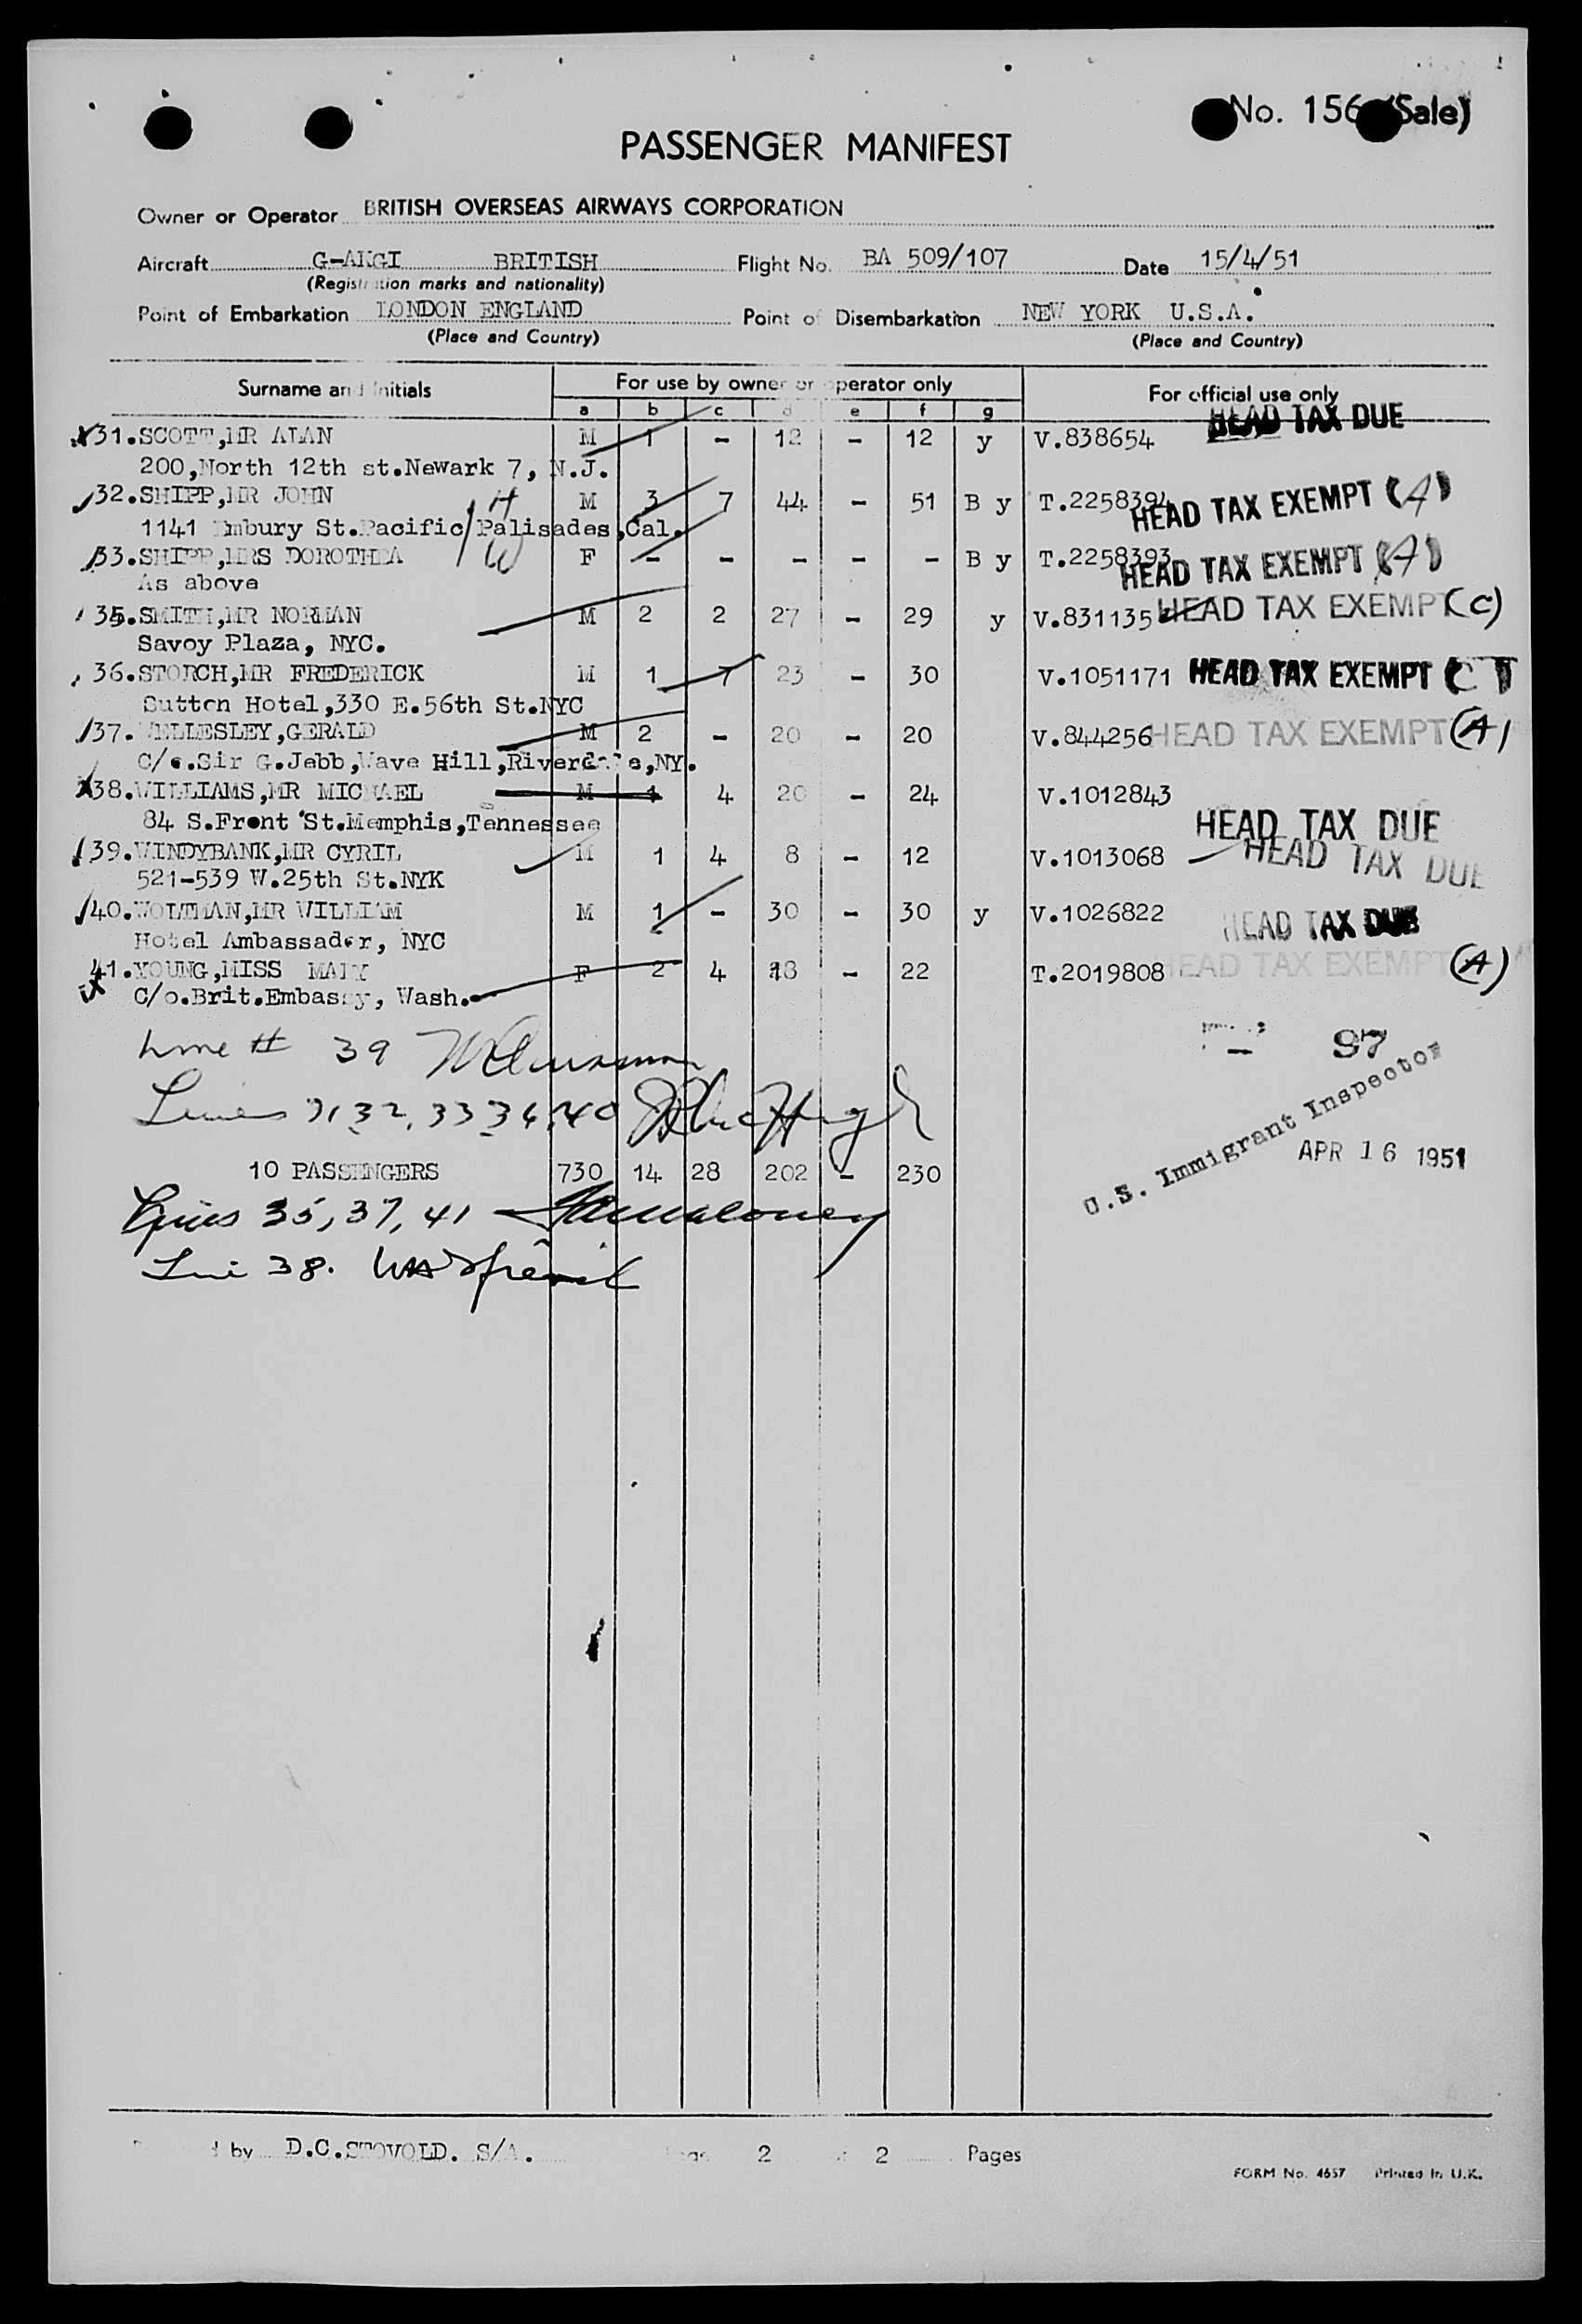 No. 156 (Sale)
PASSENGER MANIFEST
Owner or Operator BRITISH OVERSEAS AIRWAYS CORPORATION
Aircraft G-AKGI BRITISH Flight No. BA 509/107 Date 15/4/51
(Registration marks and nationality)
Point of Embarkation LONDON ENGLAND Point of Disembarkation NEW YORK U.S.A.
(Place and Country) (Place and Country)
Surname and Initials For use by owner or operator only For official use only
a b c d e f g
HEAD TAX DUE
31. SCOTT, MR ALAN M 1 - 12 - 12 y V.838654
200, North 12th st. Newark 7, N.J.
32. SHIPP, MR JOHN H M 3 7 44 - 51 B y T.2258394 HEAD TAX EXEMPT (A)
1141 Embury St. Pacific Palisades, Cal.
33. SHIPP, MRS DOROTHEA W F - - - - - B y T.2258393 HEAD TAX EXEMPT (A)
As above
35. SMITH, MR NORMAN M 2 2 27 - 29 y V.831135 HEAD TAX EXEMPT (C)
Savoy Plaza, NYC.
36. STORCH, MR FREDERICK M 1 7 23 - 30 V.1051171 HEAD TAX EXEMPT (C)
Sutton Hotel, 330 E. 56th St. NYC
37. WELLESLEY, GERALD M 2 - 20 - 20 V.844256 HEAD TAX EXEMPT (A)
C/o. Sir G. Jebb, Wave Hill, Riverdale, NY.
38. WILLIAMS, MR MICHAEL M 1 4 20 - 24 V.1012843
84 S. Front St. Memphis, Tennessee HEAD TAX DUE
39. WINDYBANK, MR CYRIL M 1 4 8 - 12 V.1013068 HEAD TAX DUE
521-539 W. 25th St. NYK
40. WOLTMAN, MR WILLIAM M 1 - 30 - 30 y V.1026822 HEAD TAX DUE
Hotel Ambassador, NYC
41. YOUNG, MISS MARY F 2 4 18 - 22 T.2019808 HEAD TAX EXEMPT (A)
C/o. Brit. Embassy, Wash.
Line # 39
97
Lines 31 32, 33 36, 40
U.S. Immigrant Inspector
APR 16 1951
10 PASSENGERS 730 14 28 202 - 230
Lines 35, 37, 41
Line 38.
by D.C. STOVOLD. S/A. Page 2 of 2 Pages
FORM No. 4657 Printed in U.K.